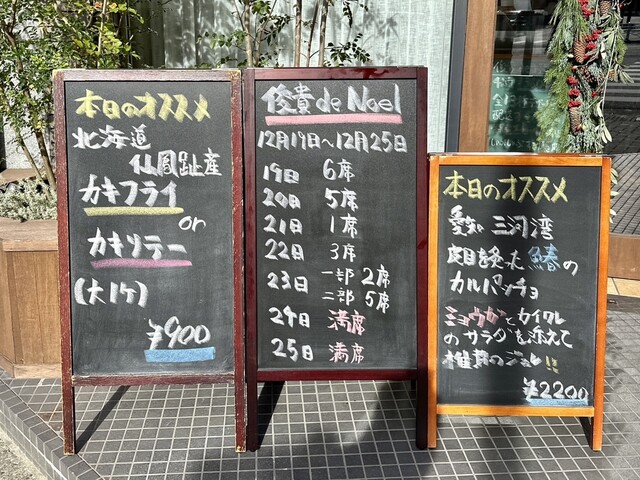 本日のオススメ
北海道
仙鳳趾産
カキフライ
or
カキソテー
(大1ケ)
¥900
俊貴 de Noel
12月19日〜12月25日
19日 6席
20日 5席
21日 1席
22日 3席
23日 一部 2席
二部 5席
24日 満席
25日 満席
本日のオススメ
愛知 三河湾
鰆の
カルパッチョ
ミョウガとカイワレ
のサラダを添えて
¥2200